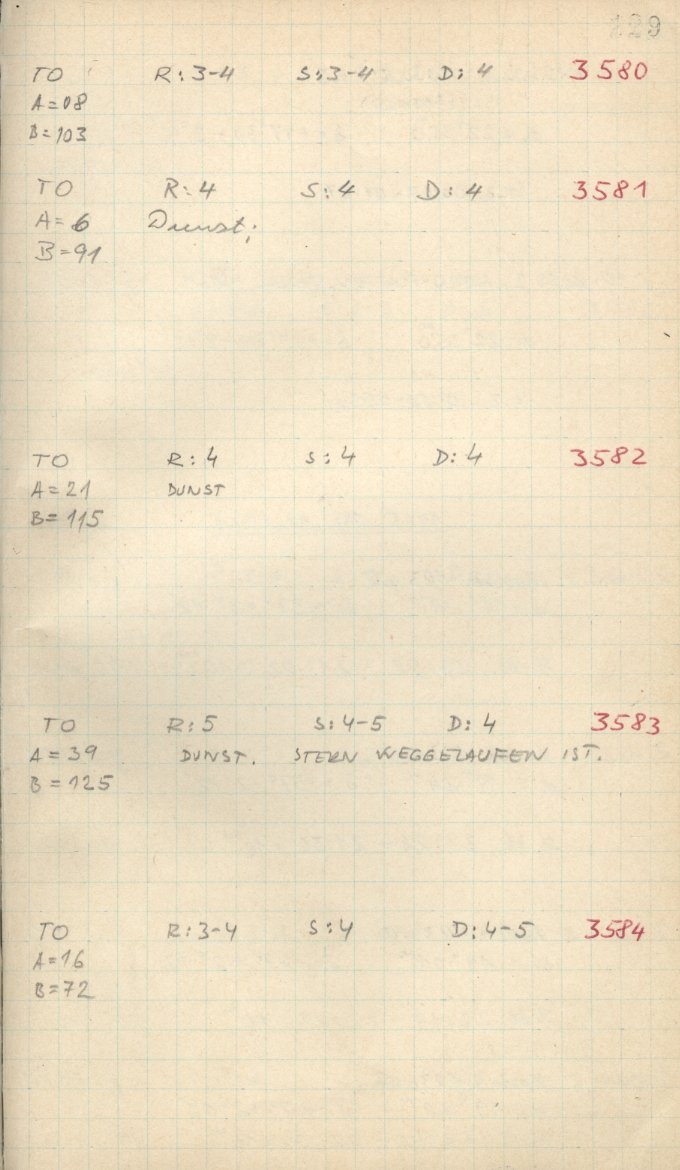 129
TO R: 3-4 S: 3-4 D: 4 3580
A=08
B=103
TO R: 4 S: 4 D: 4 3581
A=6 Dunst;
B=91
TO R: 4 S: 4 D: 4 3582
A=21 DUNST
B=115
TO R: 5 S: 4-5 D: 4 3583
A=39 DUNST. STERN WEGGELAUFEN IST.
B=125
TO R: 3-4 S: 4 D: 4-5 3584
A=16
B=72